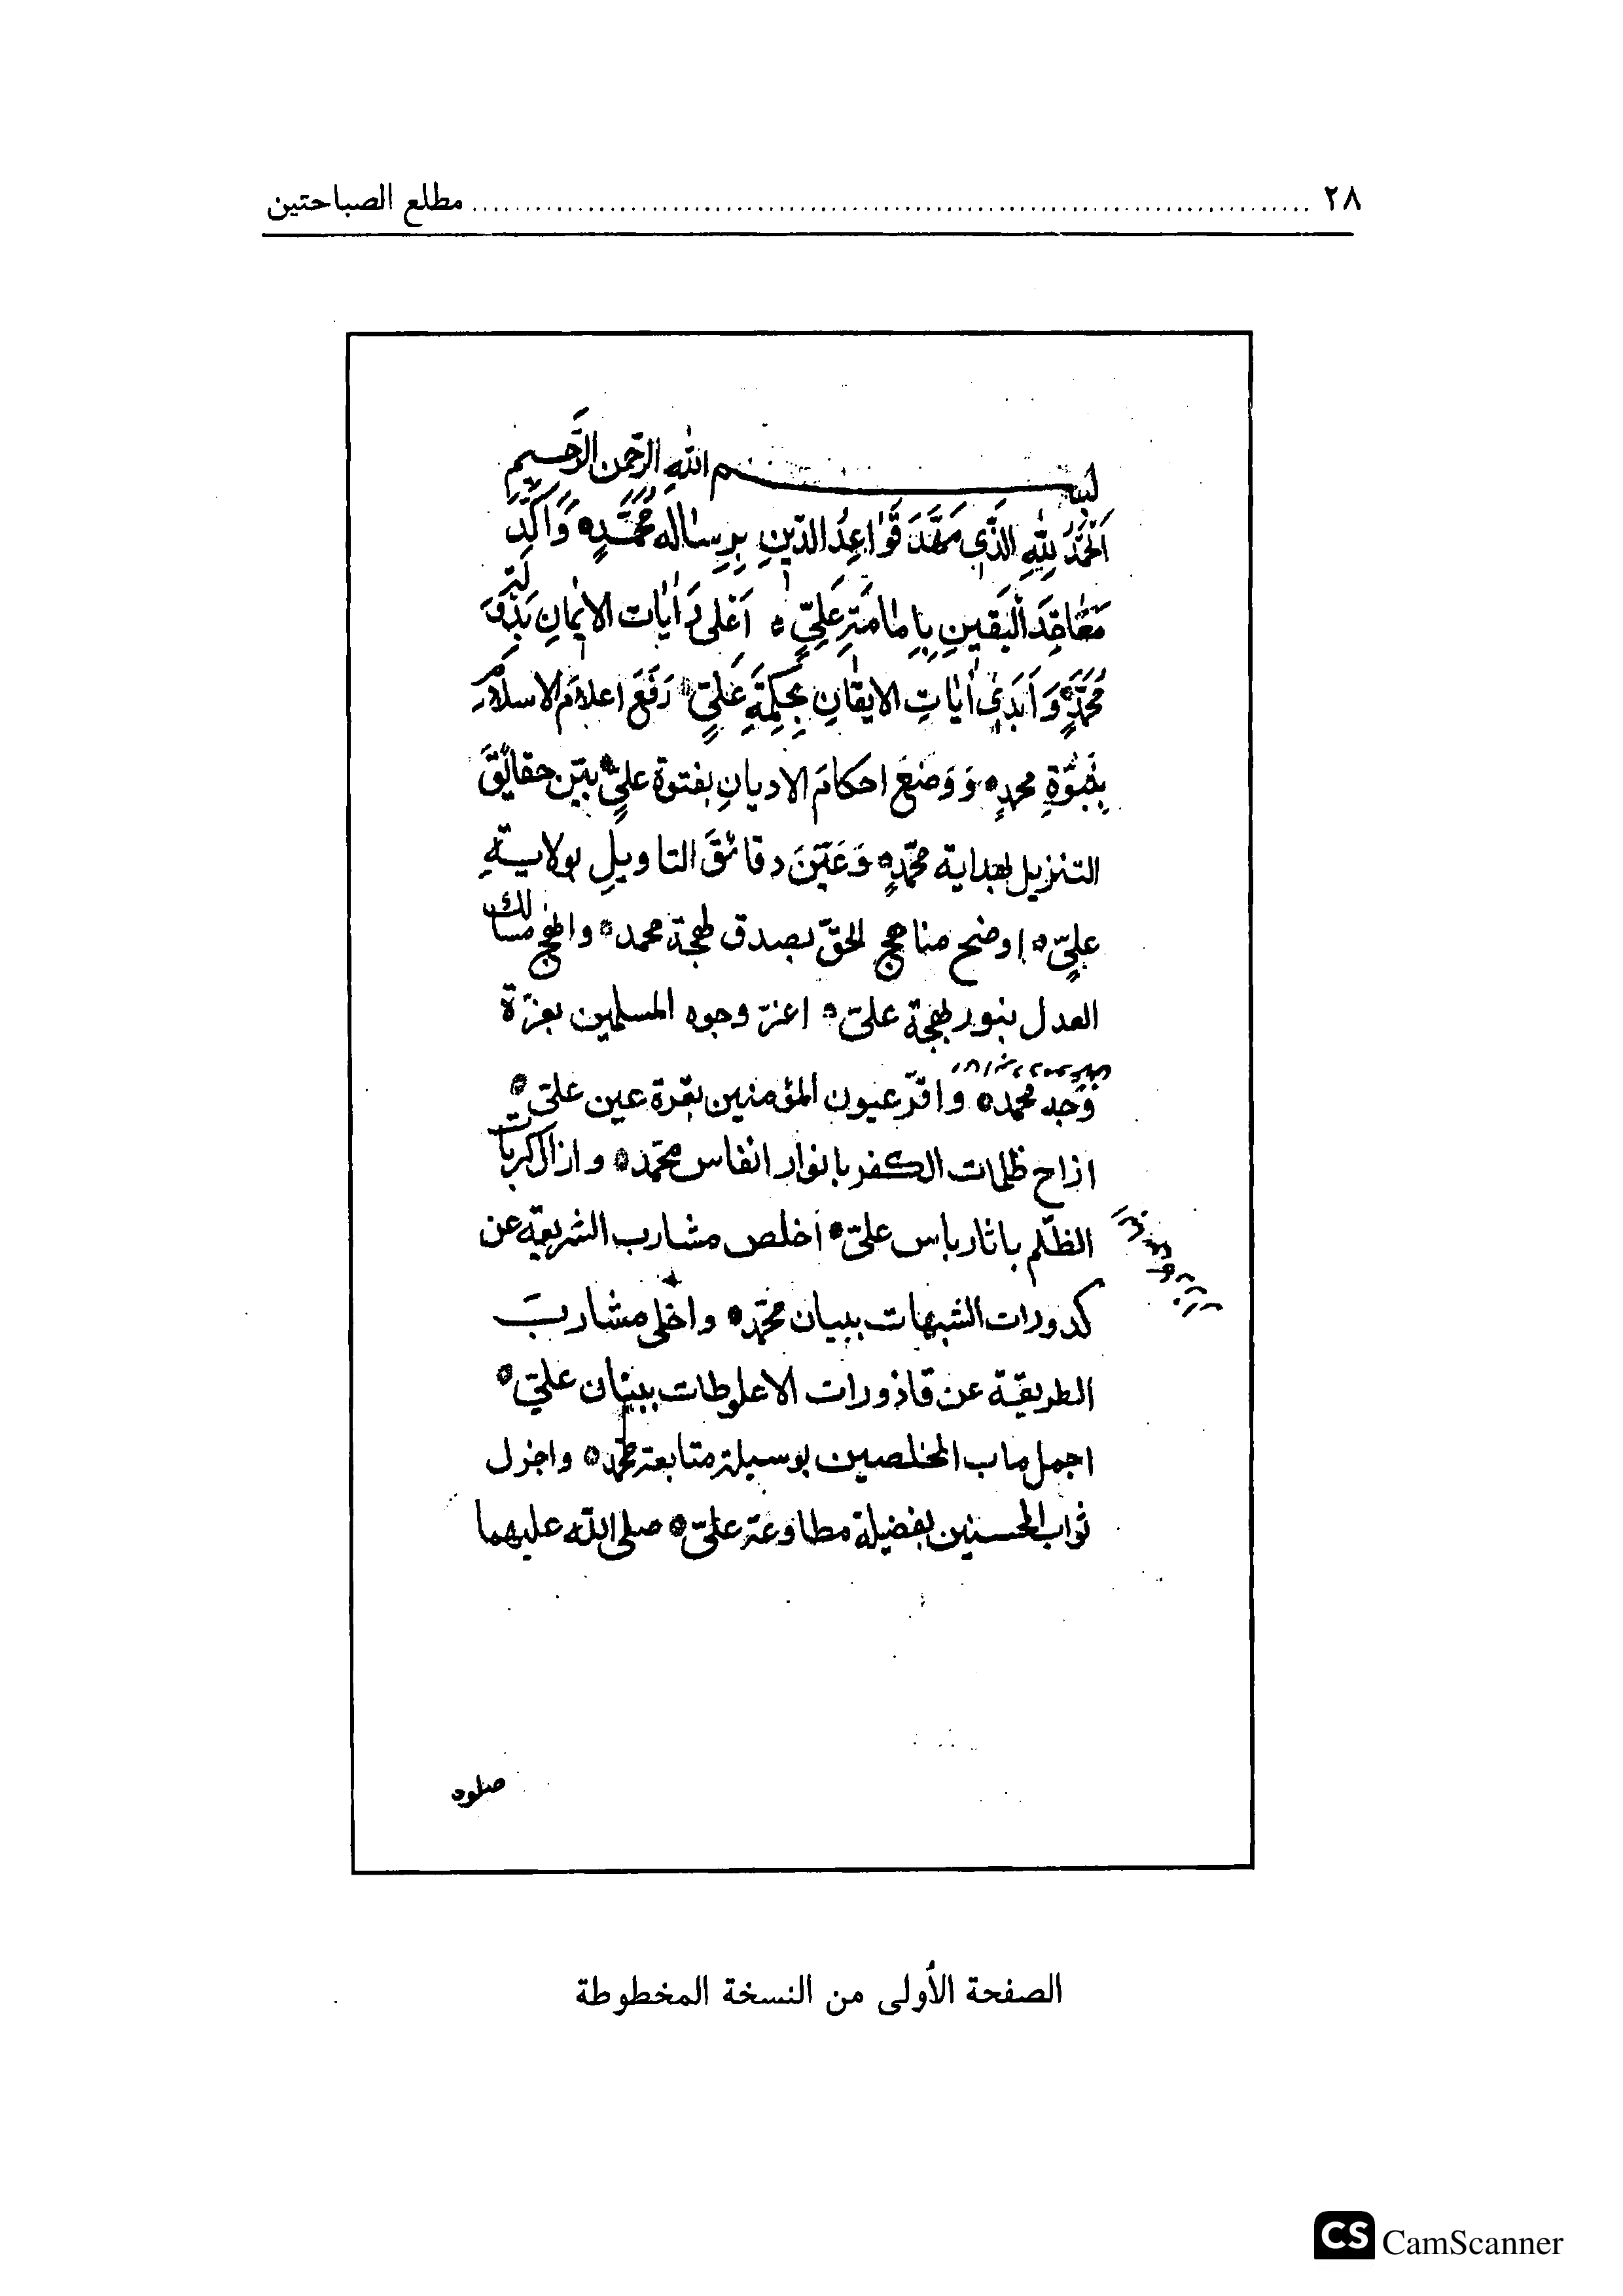 ٢٨ ........ مطلع الصباحتين
بسم الله الرحمن الرحيم
اَلْحَمْدُ لِلّٰهِ الَّذي مَهَّدَ قَوٰاعِدُ الدّينِ بِرِسٰاله مُحَمَّدٍ وَاَكَّدَ
مَعٰاقِدَ الْيَقينِ بِاِمٰامَةِ عَلِيٍّ اَعْلى رٰايٰات الايمانِ
مُحَمَّدٍ وَاَبَدى اٰيٰاتِ الايقانِ بِحِكمَةِ عَلِيٍّ رَفَعَ اعلامَ الاسلام
بِنُبُوَّةِ محمدٍ وَوَضَعَ احكامَ الاديانِ بفتوة عليٍّ بيّن حقائقَ
التنزيل بهداية محمّدٍ وَعَيَّنَ دقائقَ التاويلِ بولايةِ
عليٍّ اوضح مناهج الحقّ بصدق لهجة محمد وانهج مسالك
العدل بنور بهجة عليّ اعزّ وجوه المسلمين بعزّة
وَجه محمد واقرّ عيون المؤمنين بقرة عين عليّ
ازاح ظلمات الكفر بانوار انفاس محمّد وازال كربات
الظلم باثار باس عليّ اخلص مشارب الشريعة عن
كدورات الشبهات ببيان محمّد واخلى مشاربَ
الطريقة عن قاذورات الاغلوطات ببنيان عليّ
اجمل ماب المخلصين بوسيلة متابعة محمّد واجزل
ثواب المحسنين بفضيلة مطاوعة عليّ صلى الله عليهما
صلوة
الصفحة الأولى من النسخة المخطوطة
CS CamScanner